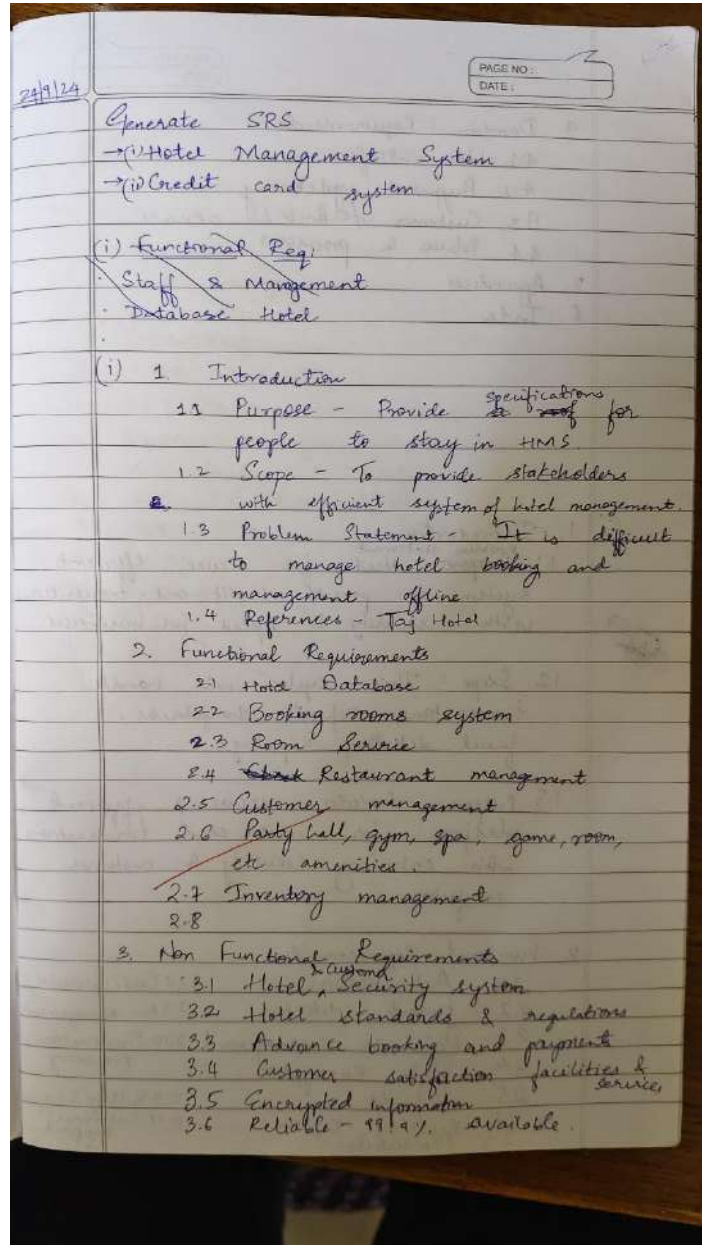 PAGE NO :
DATE :
24/9/24
Generate SRS
→(i) Hotel Management System
→(ii) Credit card system
(i) Functional Req:
· Staff & Mangement
· Database Hotel
·
(i) 1. Introduction
1.1 Purpose - Provide specifications for
people to stay in HMS.
1.2 Scope - To provide stakeholders
with efficient system of hotel management.
1.3 Problem Statement - It is difficult
to manage hotel booking and
management offline
1.4 References - Taj Hotel
2. Functional Requirements
2.1 Hotel Database
2.2 Booking rooms system
2.3 Room Service
2.4 Restaurant management
2.5 Customer management
2.6 Party hall, gym, spa, game, room,
etc amenities.
2.7 Inventory management
2.8
3. Non Functional Requirements
3.1 Hotel & Customer Security system
3.2 Hotel standards & regulations
3.3 Advance booking and payments
3.4 Customer satisfaction facilities & services
3.5 Encrypted information
3.6 Reliable - 99.9% available.